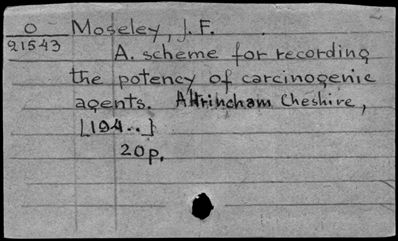 O Moseley, J.F.
21543 A. scheme for recording
the potency of carcinogenic
agents. Altrincham Cheshire,
[194..]
20p.